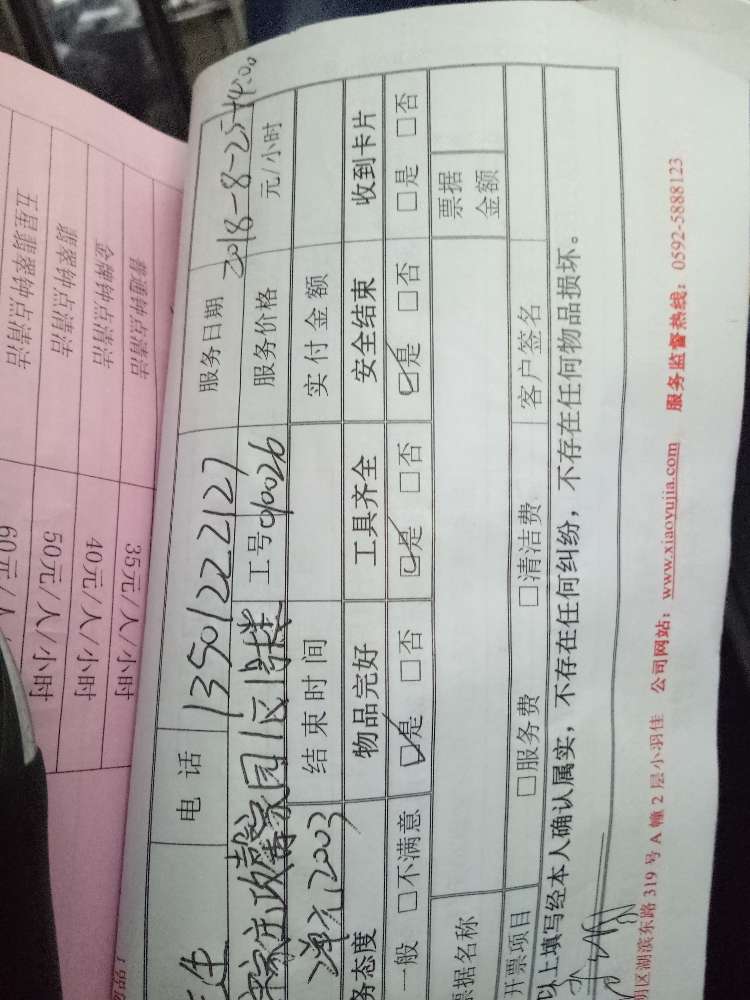 电话 13501222127 服务日期 2018-8-25 14:00
家园1区1号楼 工号 010026 服务价格 元/小时
单元12003 结束时间 实付金额
务态度 物品完好 工具齐全 安全结束 收到卡片
一般 □不满意 ☑是 □否 ☑是 □否 ☑是 □否 □是 □否
票据名称 票据金额
开票项目 □服务费 □清洁费 客户签名
以上填写经本人确认属实，不存在任何纠纷，不存在任何物品损坏。
明区湖滨东路 319 号 A 幢 2 层小羽佳 公司网站：www.xiaoyujia.com 服务监督热线：0592-5888123
普通钟点清洁 35元/人/小时
金牌钟点清洁 40元/人/小时
翡翠钟点清洁 50元/人/小时
五星翡翠钟点清洁 60元/人